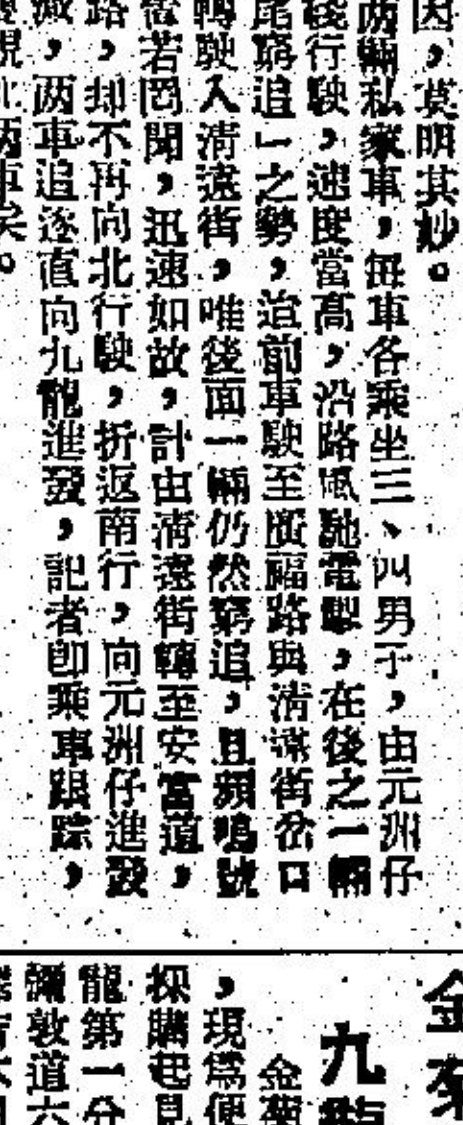 因，莫明其妙。
两輛私家車，每車各乘坐三、四男子，由元洲仔
後行駛，速度當高，沿路風馳電掣，在後之一輛
尾窮追」之勢，迨前車駛至廣福路與清遠街岔口
轉駛入清遠街，唯後面一輛仍然窮追，且頻鳴號
當若罔聞，迅速如故，計由清遠街轉至安富道，
路，却不再向北行駛，折返南行，向元洲仔進發
，两車追逐直向九龍進發，記者即乘車跟踪，
金菊
九龍
金菊
，現爲便
採購起見
龍第一分
彌敦道六